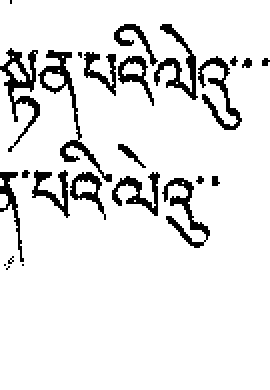 སྟན་པའི་ལེའུ་་་
ན་པའི་ལེའུ་་